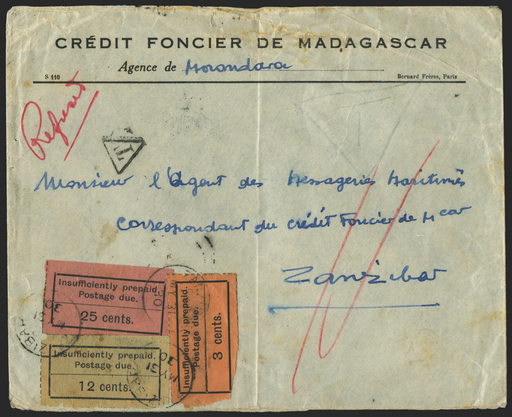 CRÉDIT FONCIER DE MADAGASCAR
Agence de Morondava
S 110
Bernard Frères, Paris
Refused
T
Monsieur l'Agent des Messageries Maritimes
Correspondant du Crédit Foncier de Mcar
Zanzibar
Insufficiently prepaid.
Postage due.
25 cents.
Insufficiently prepaid.
Postage due.
3 cents.
Insufficiently prepaid.
Postage due.
12 cents.
MY 31
30